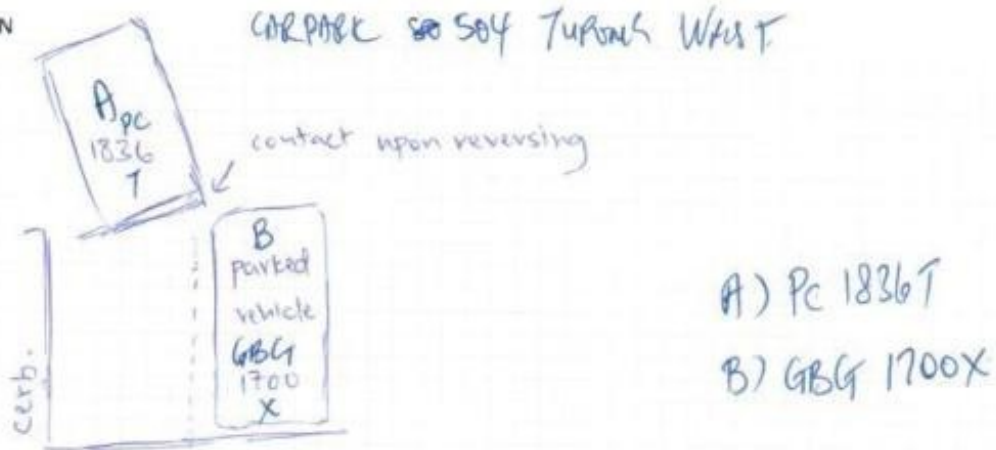 N
CARPARK 504 JURONG WEST
A
PC
1836
T
contact upon reversing
B
parked
vehicle
GBG
1700
X
cerb.
A) PC 1836T
B) GBG 1700X